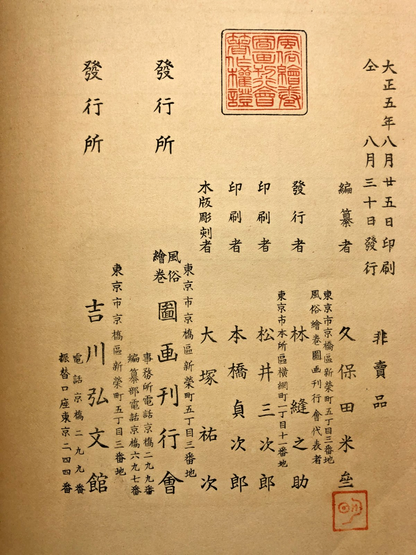 大正五年八月廿五日印刷
仝 八月三十日發行
非賣品
編纂者 久保田米齋
東京市京橋區新榮町五丁目三番地
風俗繪卷圖画刊行會代表者
發行者 林縫之助
東京市本所區横網町一丁目十一番地
印刷者 松井三次郎
印刷者 本橋貞次郎
木版彫刻者 大塚祐次
東京市京橋區新榮町五丁目三番地
發行所 風俗繪卷圖画刊行會
事務所電話京橋二九九番
編纂部電話京橋六九七番
東京市京橋區新榮町五丁目三番地
發行所 吉川弘文館
電話京橋二九九番
振替口座東京二四四番